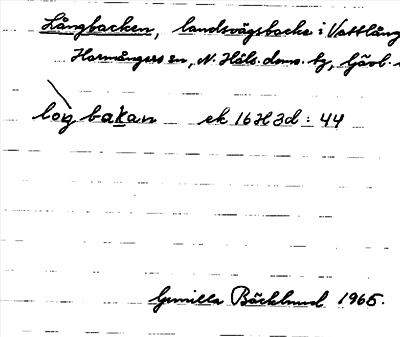 Långbacken, landsvägsbacke i Vattlång
Harmångers sn, N. Häls. doms. hg, Gävl.
loŋ bakan ek 16H3d : 44
Gunilla Bäcklund 1965.